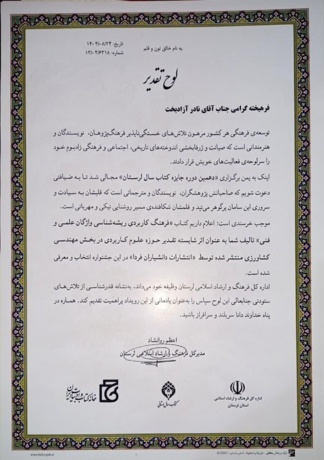 به نام خالق نون و قلم
تاریخ: ۱۴۰۲/۰۸/۲۳
شماره: ۱۲۱۰۲/۶۳۱۸
لوح تقدیر
فرهیخته گرامی جناب آقای نادر آزادبخت
توسعه‌ی فرهنگی هر کشور مرهون تلاش‌های خستگی‌ناپذیر فرهنگ‌پژوهان، نویسندگان و
هنرمندانی است که صیانت و ژرفابخشی اندوخته‌های تاریخی، اجتماعی و فرهنگی زادبوم خود
را سرلوحه‌ی فعالیت‌های خویش قرار دادند.
اینک به یمن برگزاری «دهمین دوره جایزه کتاب سال لرستان» مجالی شد تا به ضیافتی
دعوت شویم که صاحبانش پژوهشگران، نویسندگان و مترجمانی است که قلبشان به سیادت و
سروری این سامان پرگوهر می‌تپد و قلمشان شکافنده‌ی مسیر روشنایی نیکی و مهربانی است.
موجب خرسندی است؛ اعلام داریم کتاب «فرهنگ کاربردی ریشه‌شناسی واژگان علمی و
فنی» تالیف شما به عنوان اثر شایسته تقدیر حوزه علوم کاربردی در بخش مهندسی
کشاورزی منتشر شده توسط «انتشارات دانشیاران فردا» در این جشنواره انتخاب و معرفی
شده است.
اداره کل فرهنگ و ارشاد اسلامی لرستان وظیفه خود می‌داند، به‌نشانه قدرشناسی از تلاش‌های
ستودنی جنابعالی این لوح سپاس را به‌عنوان یادمانی از این رویداد پراهمیت تقدیم کند. همواره در
پناه خداوند دانا سربلند و سرافراز باشید.
اعظم روانشاد
مدیرکل فرهنگ و ارشاد اسلامی لرستان
اداره کل فرهنگ و ارشاد اسلامی
استان لرستان